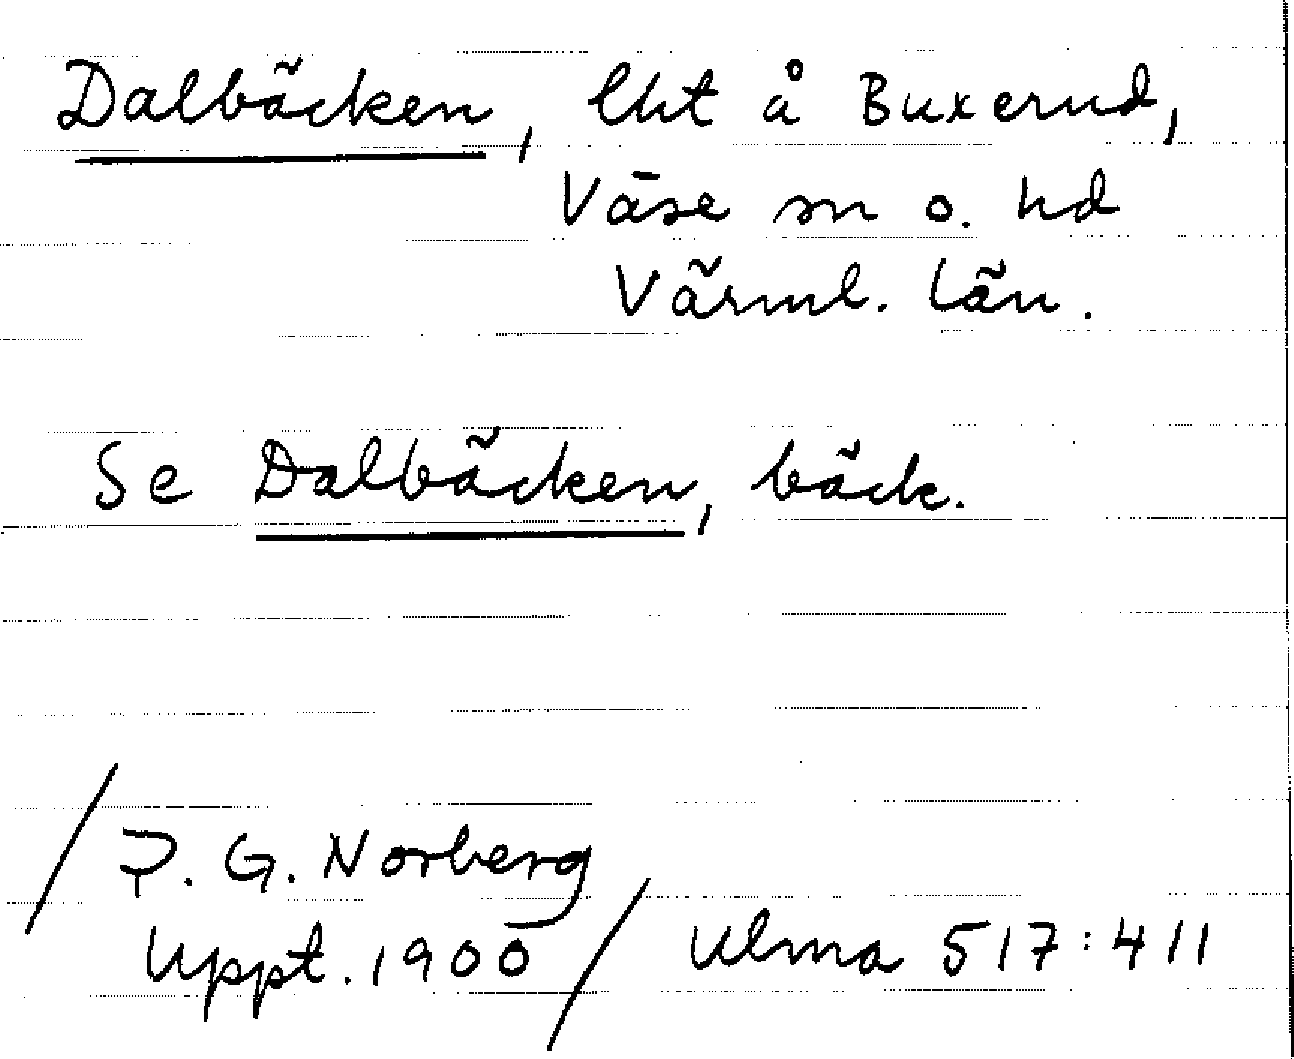 Dalbäcken, lht å Buxerud,
Väse sn o. hd
Värml. län.
Se Dalbäcken, bäck.
/ P. G. Norberg
Uppt. 1900 / Ulma 517:411